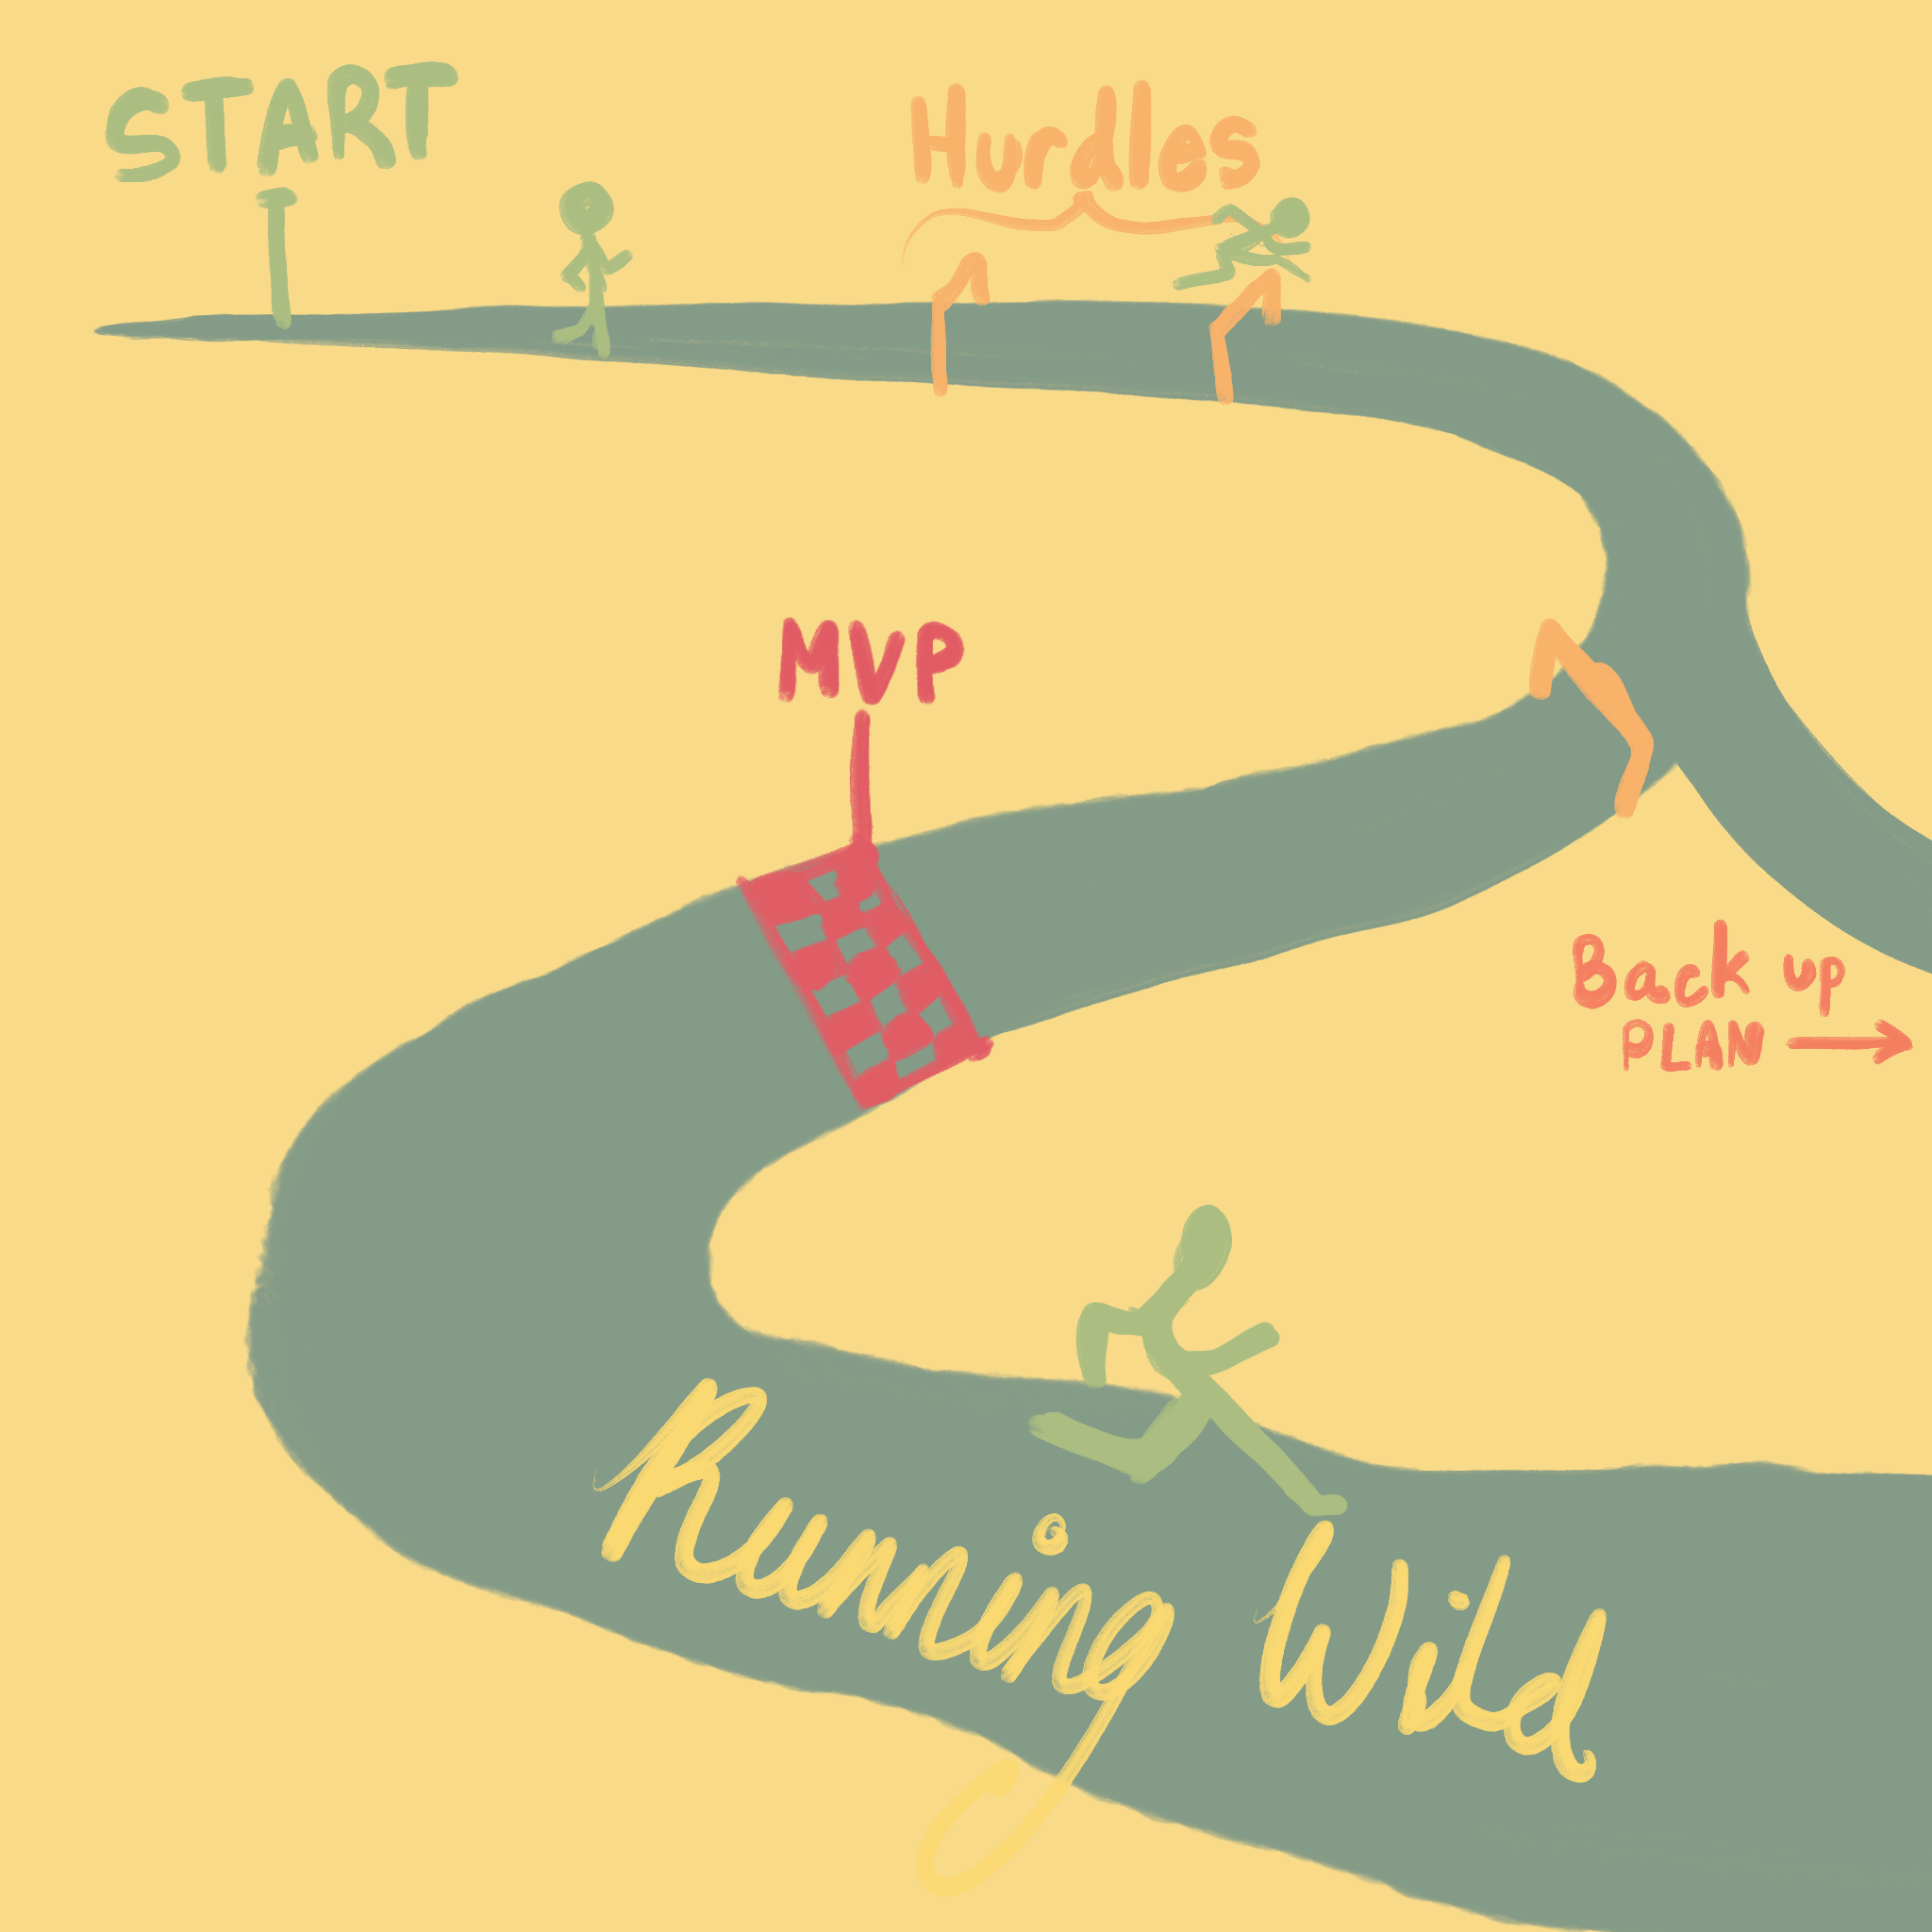 START
Hurdles
MVP
Back up
PLAN
Running Wild